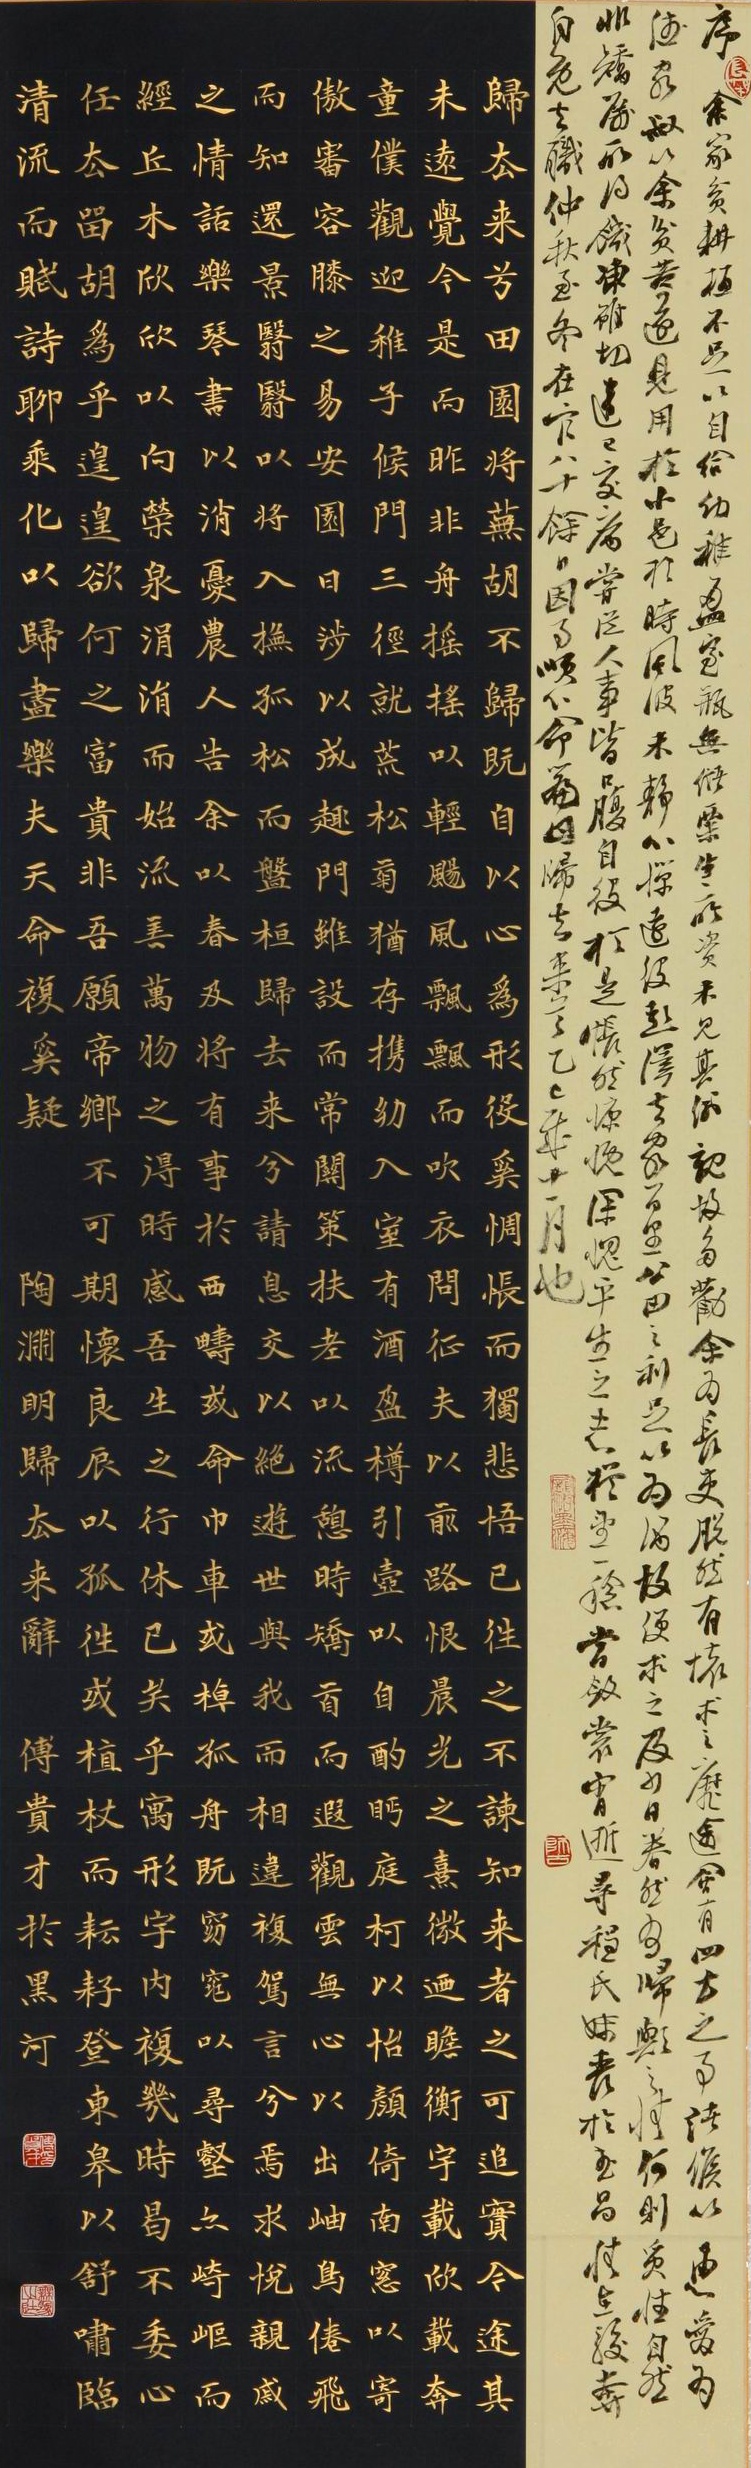 序 余家貧耕植不足以自給幼稚盈室瓶無儲粟生生所資未見其術親故多勸余為長吏脫然有懷求之靡途會有四方之事諸侯以惠愛為
德家叔以余貧苦遂見用於小邑於時風波未靜心憚遠役彭澤去家百里公田之利足以為酒故便求之及少日眷然有歸歟之情何則質性自然
非矯厲所得飢凍雖切違己交病嘗從人事皆口腹自役於是悵然慷慨深愧平生之志猶望一稔當斂裳宵逝尋程氏妹喪於武昌情在駿奔
自免去職仲秋至冬在官八十餘日因事順心命篇曰歸去来兮乙巳歲十一月也
歸厺来兮田園將蕪胡不歸既自以心為形役奚惆悵而獨悲悟已往之不諫知来者之可追實令途其
未遠覺今是而昨非舟摇摇以輕颺風飄飄而吹衣問征夫以前路恨晨光之熹微迺瞻衡宇載欣載奔
童僕觀迎稚子候門三徑就荒松菊猶存携幼入室有酒盈樽引壼以自酌眄庭柯以怡顏倚南窓以寄
傲審容膝之易安園日涉以成趣門雖設而常關策扶老以流憩時矯首而遐觀雲無心以出岫鳥倦飛
而知還景翳翳以將入撫孤松而盤桓歸去来兮請息交以絕遊世與我而相違複駕言兮焉求悅親戚
之情話樂琴書以消憂農人告余以春及將有事於西疇或命巾車或棹孤舟既窈窕以尋壑亦崎嶇而
經丘木欣欣以向榮泉涓涓而始流善萬物之得時感吾生之行休已矣乎寓形宇内複幾時曷不委心
任厺留胡為乎遑遑欲何之富貴非吾願帝鄉不可期懷良辰以孤往或植杖而耘耔登東皋以舒嘯臨
清流而賦詩聊乘化以歸盡樂夫天命複奚疑 陶淵明歸厺来辭 傅貴才於黑河